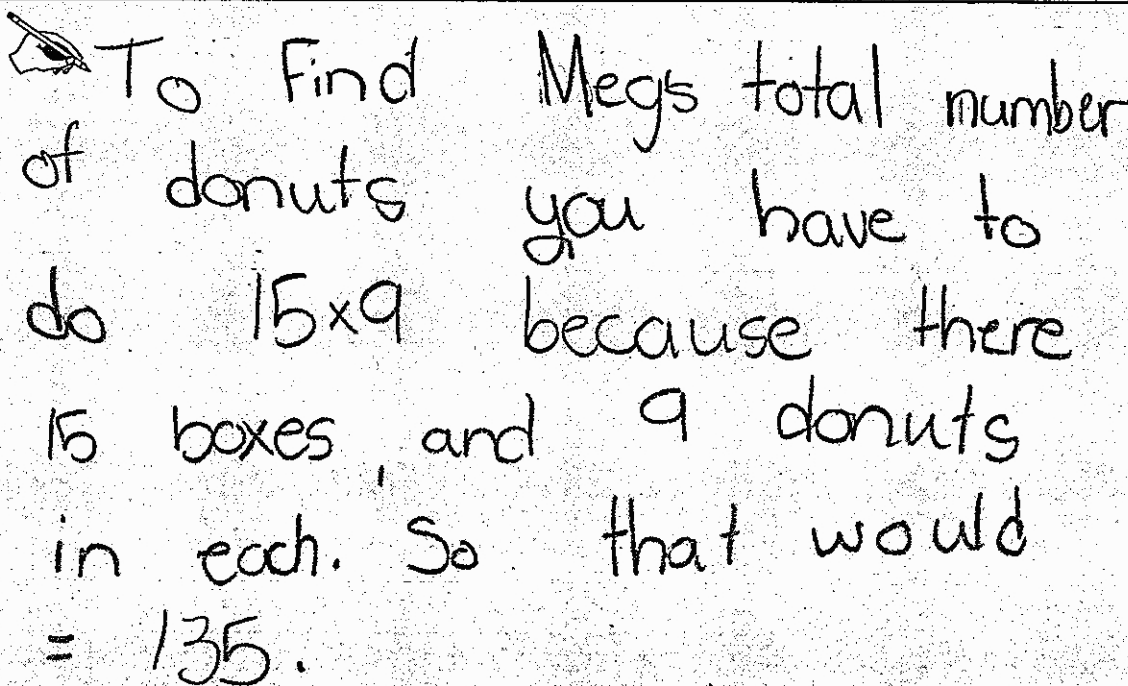 To Find Megs total number
of donuts you have to
do 15x9 because there
15 boxes, and 9 donuts
in each. So that would
= 135.